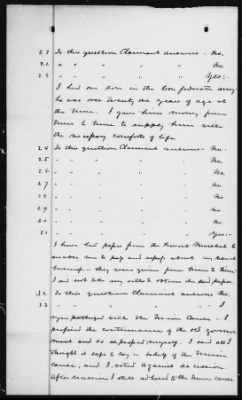 21 To this question Claimant answers - No.
22 " " " " " No
23 " " " " " Yes:-
I had one son in the Confederate army
he was over twenty one years of age at
the time. I gave him money from
time to time to supply him with
the necessary comforts of life
24 To this question Claimant answers - No.
25 " " " " " No.
26 " " " " " No
27 " " " " " No.
28 " " " " " No.
29 " " " " " No.
30 " " " " " No.
31 " " " " " Yes:-
I have had papers from the Provost Marshal to
enable me to pass and repass about my
business - they were given from time to time
I did not take any oath to obtain the said papers.
32 To this question Claimant answers No.
33 " " " " " - I
sympathized with the Union Cause - I
preferred the continuance of the old govern
ment and so expressed myself. I said all I
thought it safe to say in behalf of the Union
cause, and I voted against secession
After secession I still adhered to the Union cause